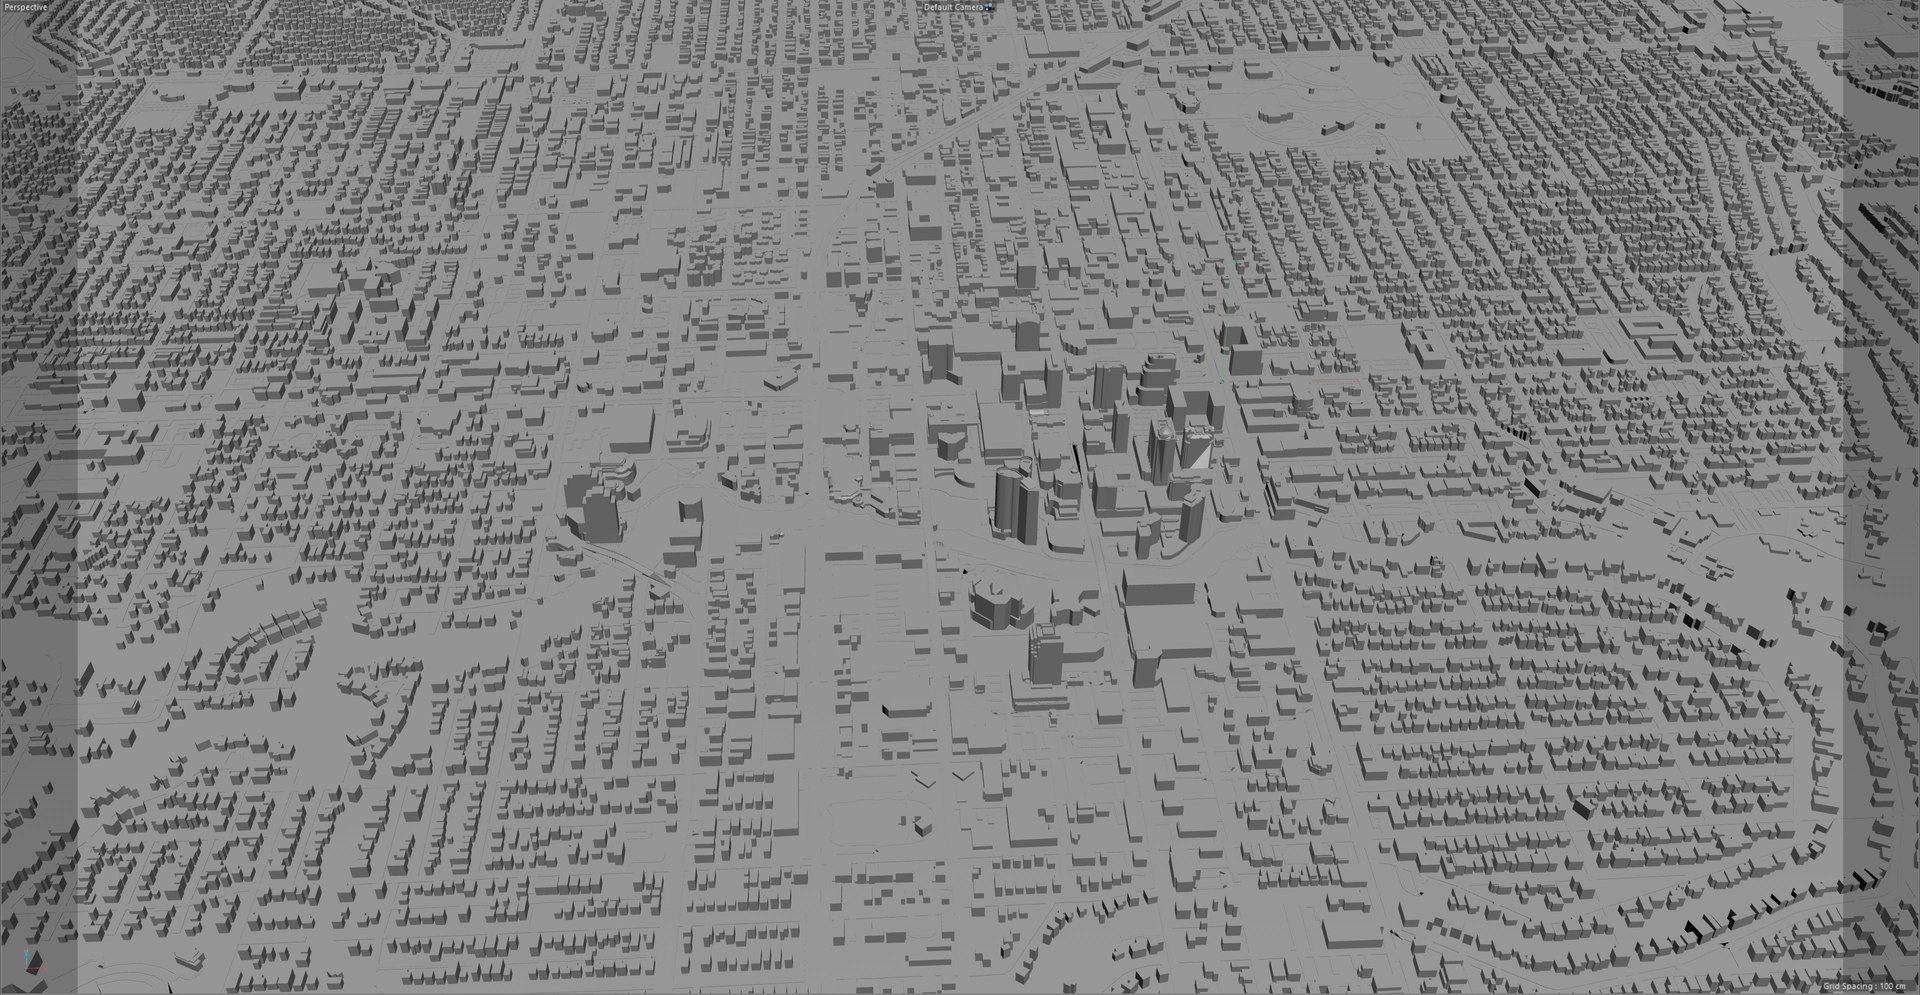 Perspective
Default Camera
Grid Spacing : 100 cm